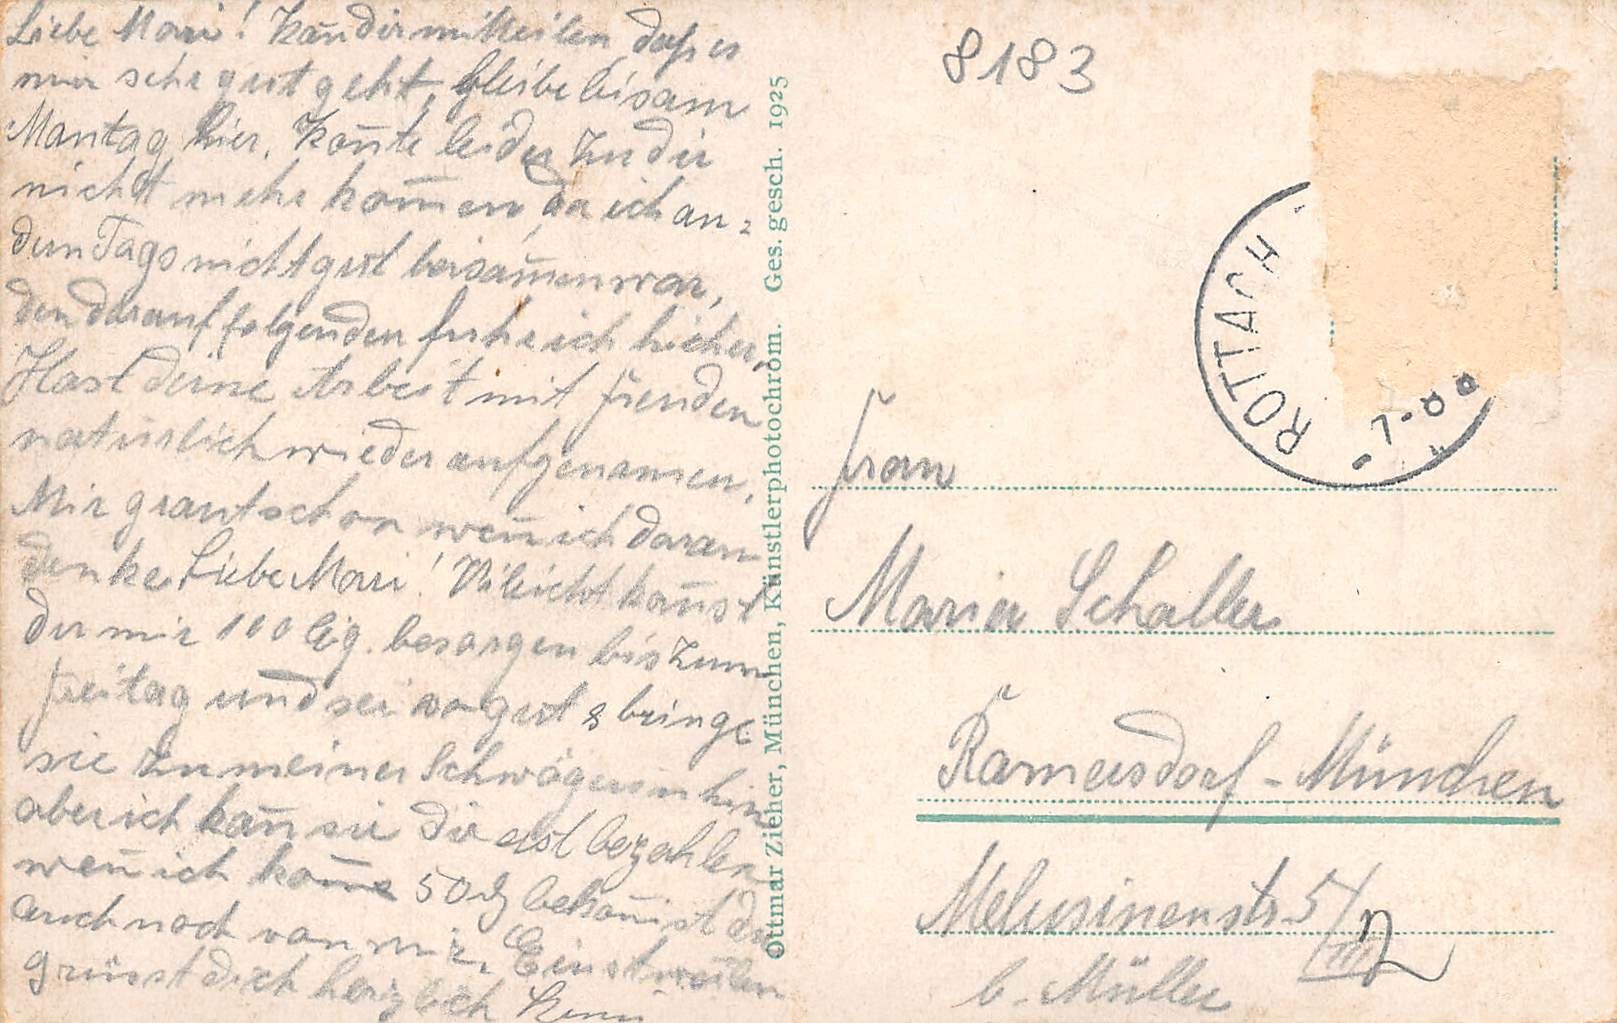 Liebe Mari! Kan̄ dir mitteilen daß es
mir sehr gut geht, bleibe bis am
Mantag hier. Kon̄te leider zu dir
nicht mehr kom̄en, da ich an=
dern Tags nicht gut beisam̄en war,
den darauf folgenden fuhr ich hieher,
Hast deine Arbeit mit Freuden
natürlich wieder aufgenomen,
Mir graut schon wen̄ ich daran
denke Liebe Mari! Vileicht kan̄st
du mir 100 Zig. besorgen bis zum
Freitag und sei so gut & bringe
sie zu meiner Schwägerin hin
aber ich kan̄ sie dir erst bezahlen
wen̄ ich kom̄e 50 bekom̄st du
auch noch von mir. Einstweilen
grüsst dich herzlich
Ottmar Zieher, München, Künstlerphotochrom. Ges. gesch. 1925
8183
ROTTACH
Frau
Maria Schaller
Ramersdorf - München
Melusinenstr. 5/III
b. Müller